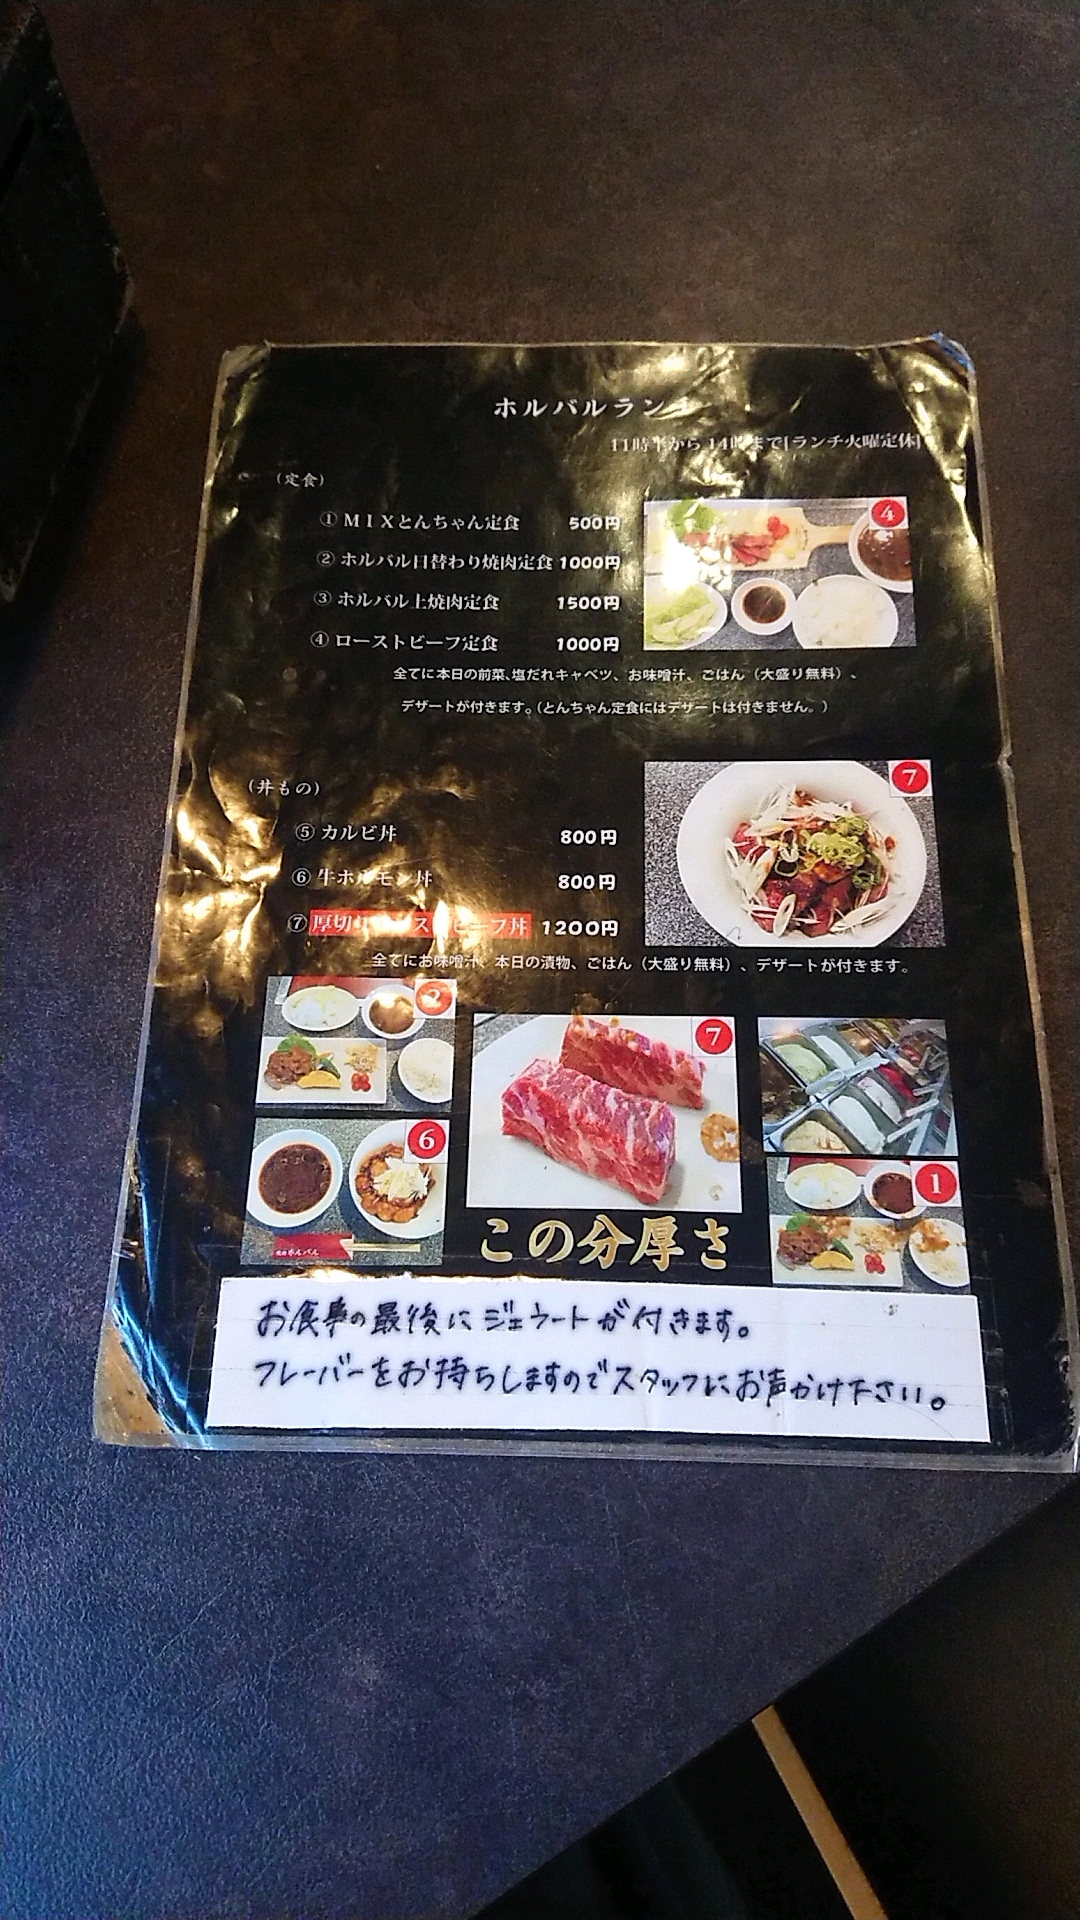 ホルバルランチ
11時半から14時まで[ランチ火曜定休]
（定食）
① ＭＩＸとんちゃん定食 500円
② ホルバル日替わり焼肉定食 1000円
③ ホルバル上焼肉定食 1500円
④ ローストビーフ定食 1000円
全てに本日の前菜、塩だれキャベツ、お味噌汁、ごはん（大盛り無料）、
デザートが付きます。（とんちゃん定食にはデザートは付きません。）
4
（丼もの）
⑤ カルビ丼 800円
⑥ 牛ホルモン丼 800円
⑦ 厚切りローストビーフ丼 1200円
全てにお味噌汁、本日の漬物、ごはん（大盛り無料）、デザートが付きます。
7
2
7
6
1
ホルバル
この分厚さ
お食事の最後にジェラートが付きます。
フレーバーをお持ちしますのでスタッフにお声かけ下さい。